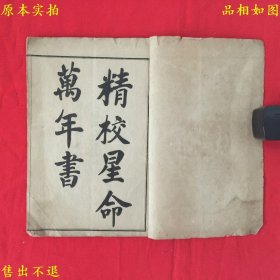 原本实拍
品相如图
精校星命
萬年書
售出不退